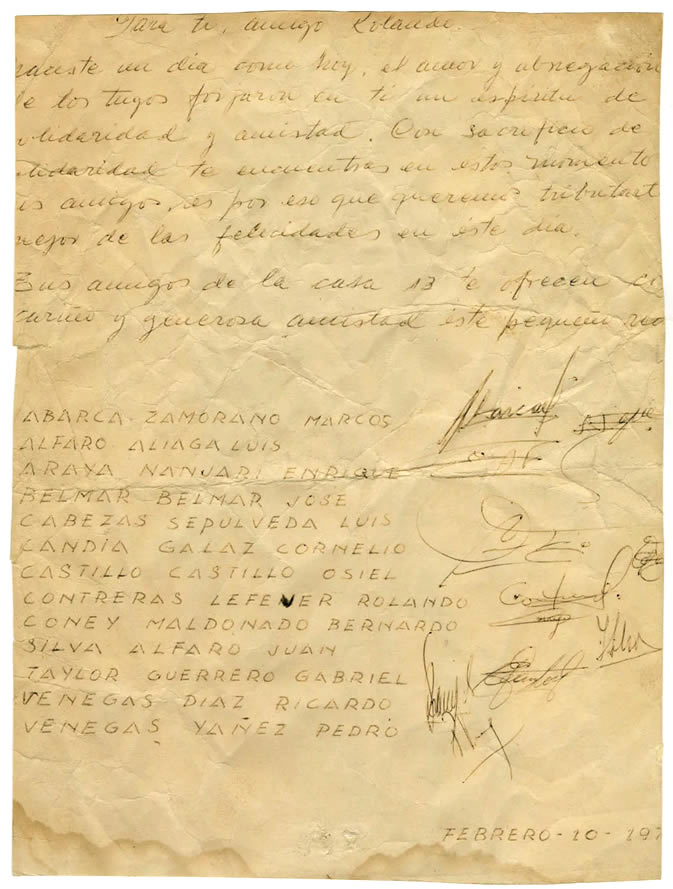 Para ti, amigo Rolando.
naciste un día como hoy, el amor y abnegación
de los tuyos forjaron en ti un espíritu de
solidaridad y amistad. Con sacrificio de
solidaridad te encuentras en estos momento
es por eso que queremos tributart
mejor de las felicidades en éste día.
Tus amigos de la casa 13 te ofrecen co
cariño y generosa amistad éste pequeño
ABARCA ZAMORANO MARCOS
ALFARO ALIAGA LUIS
ARAYA NANJARI ENRIQUE
BELMAR BELMAR JOSE
CABEZAS SEPULVEDA LUIS
CANDIA GALAZ CORNELIO
CASTILLO CASTILLO OSIEL
CONTRERAS LEFEVER ROLANDO
CONEY MALDONADO BERNARDO
SILVA ALFARO JUAN
TAYLOR GUERRERO GABRIEL
VENEGAS DIAZ RICARDO
VENEGAS YAÑEZ PEDRO
FEBRERO-10-197